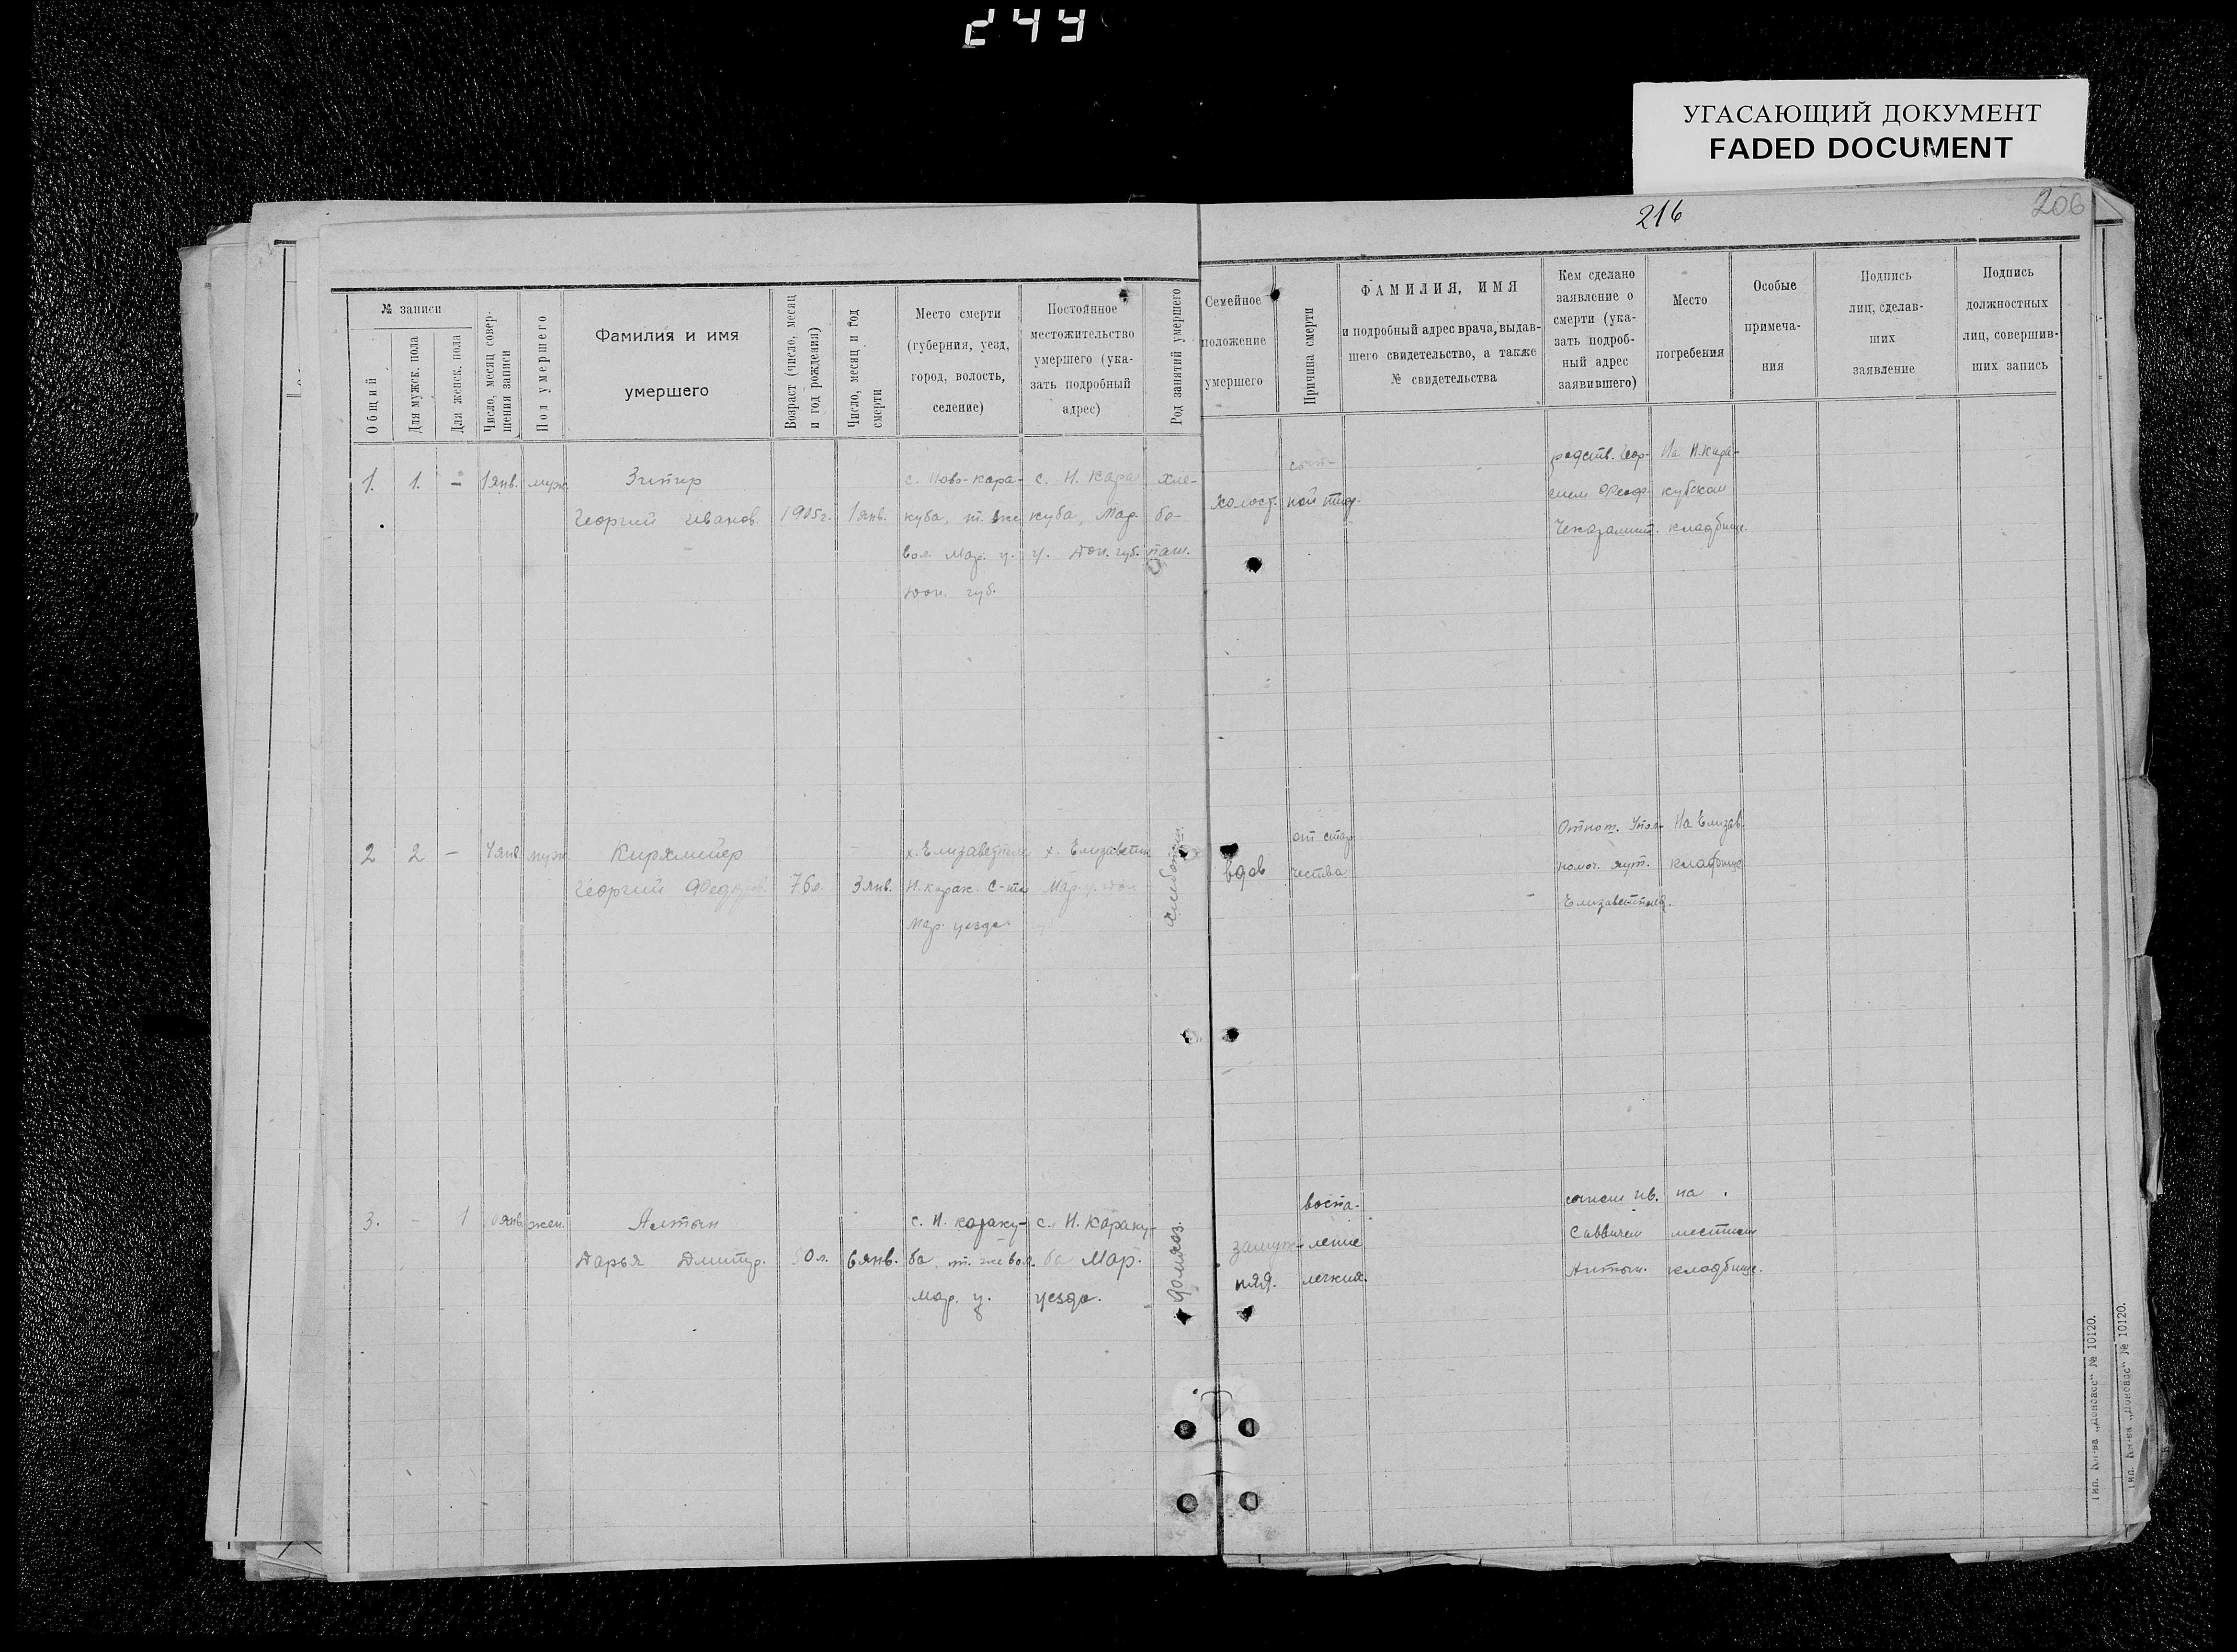 244
УГАСАЮЩИЙ ДОКУМЕНТ
FADED DOCUMENT
216
206
№ записи
Общий
Для мужск. пола
Для женск. пола
Число, месяц совер-
шения записи
Пол умершего
Фамилия и имя
умершего
Возраст (число, месяц
и год рождения)
Число, месяц и год
смерти
Место смерти
(губерния, уезд,
город, волость,
селение)
Постоянное
местожительство
умершего (ука-
зать подробный
адрес)
Род занятий умершего
Семейное
положение
умершего
Причина смерти
ФАМИЛИЯ, ИМЯ
и подробный адрес врача, выдав-
шего свидетельство, а также
№ свидетельства
Кем сделано
заявление о
смерти (ука-
зать подроб-
ный адрес
заявившего)
Место
погребения
Особые
примеча-
ния
Подпись
лиц, сделав-
ших
заявление
Подпись
должностных
лиц, совершив-
ших запись
1.
1.
-
1 янв.
муж.
Георгий Иванов.
1905 г.
1 янв.
с. Ново-кара-
куба, т. же
вол. Мар. у.
Дон. губ.
с. Н. Кара
куба, Мар.
у. Дон. губ.
хле-
бо-
паш.
холост.
сып-
ной тиф.
родств. Геор-
гием Феод.
На Н. Кара-
кубском
кладбище.
2
2
-
4 янв.
муж.
Георгий Федоров.
76 л.
3 янв.
х. Елизаветполь
Н. карак. С-та
Мар. уезда
х. Елизаветп.
Мар. у. Дон
вдов
от стар
чества
Отнош. Упол-
номоч. хут.
Елизаветполь.
На Елизав.
кладбище
3.
-
1
янв.
жен.
Алтын
Дарья Дмитр.
0 л.
6 янв.
с. Н. караку-
ба, т. же вол.
Мар. у.
с. Н. Караку-
ба Мар.
уезда.
домхоз.
замуж-
няя.
воспа-
ление
легких.
сыном Ив.
Саввичем
Алтын.
на
местном
кладбище.
Тип. Кн-ва „Донбасс" № 10120.
Тип. Кн-ва „Донбасс" № 10120.